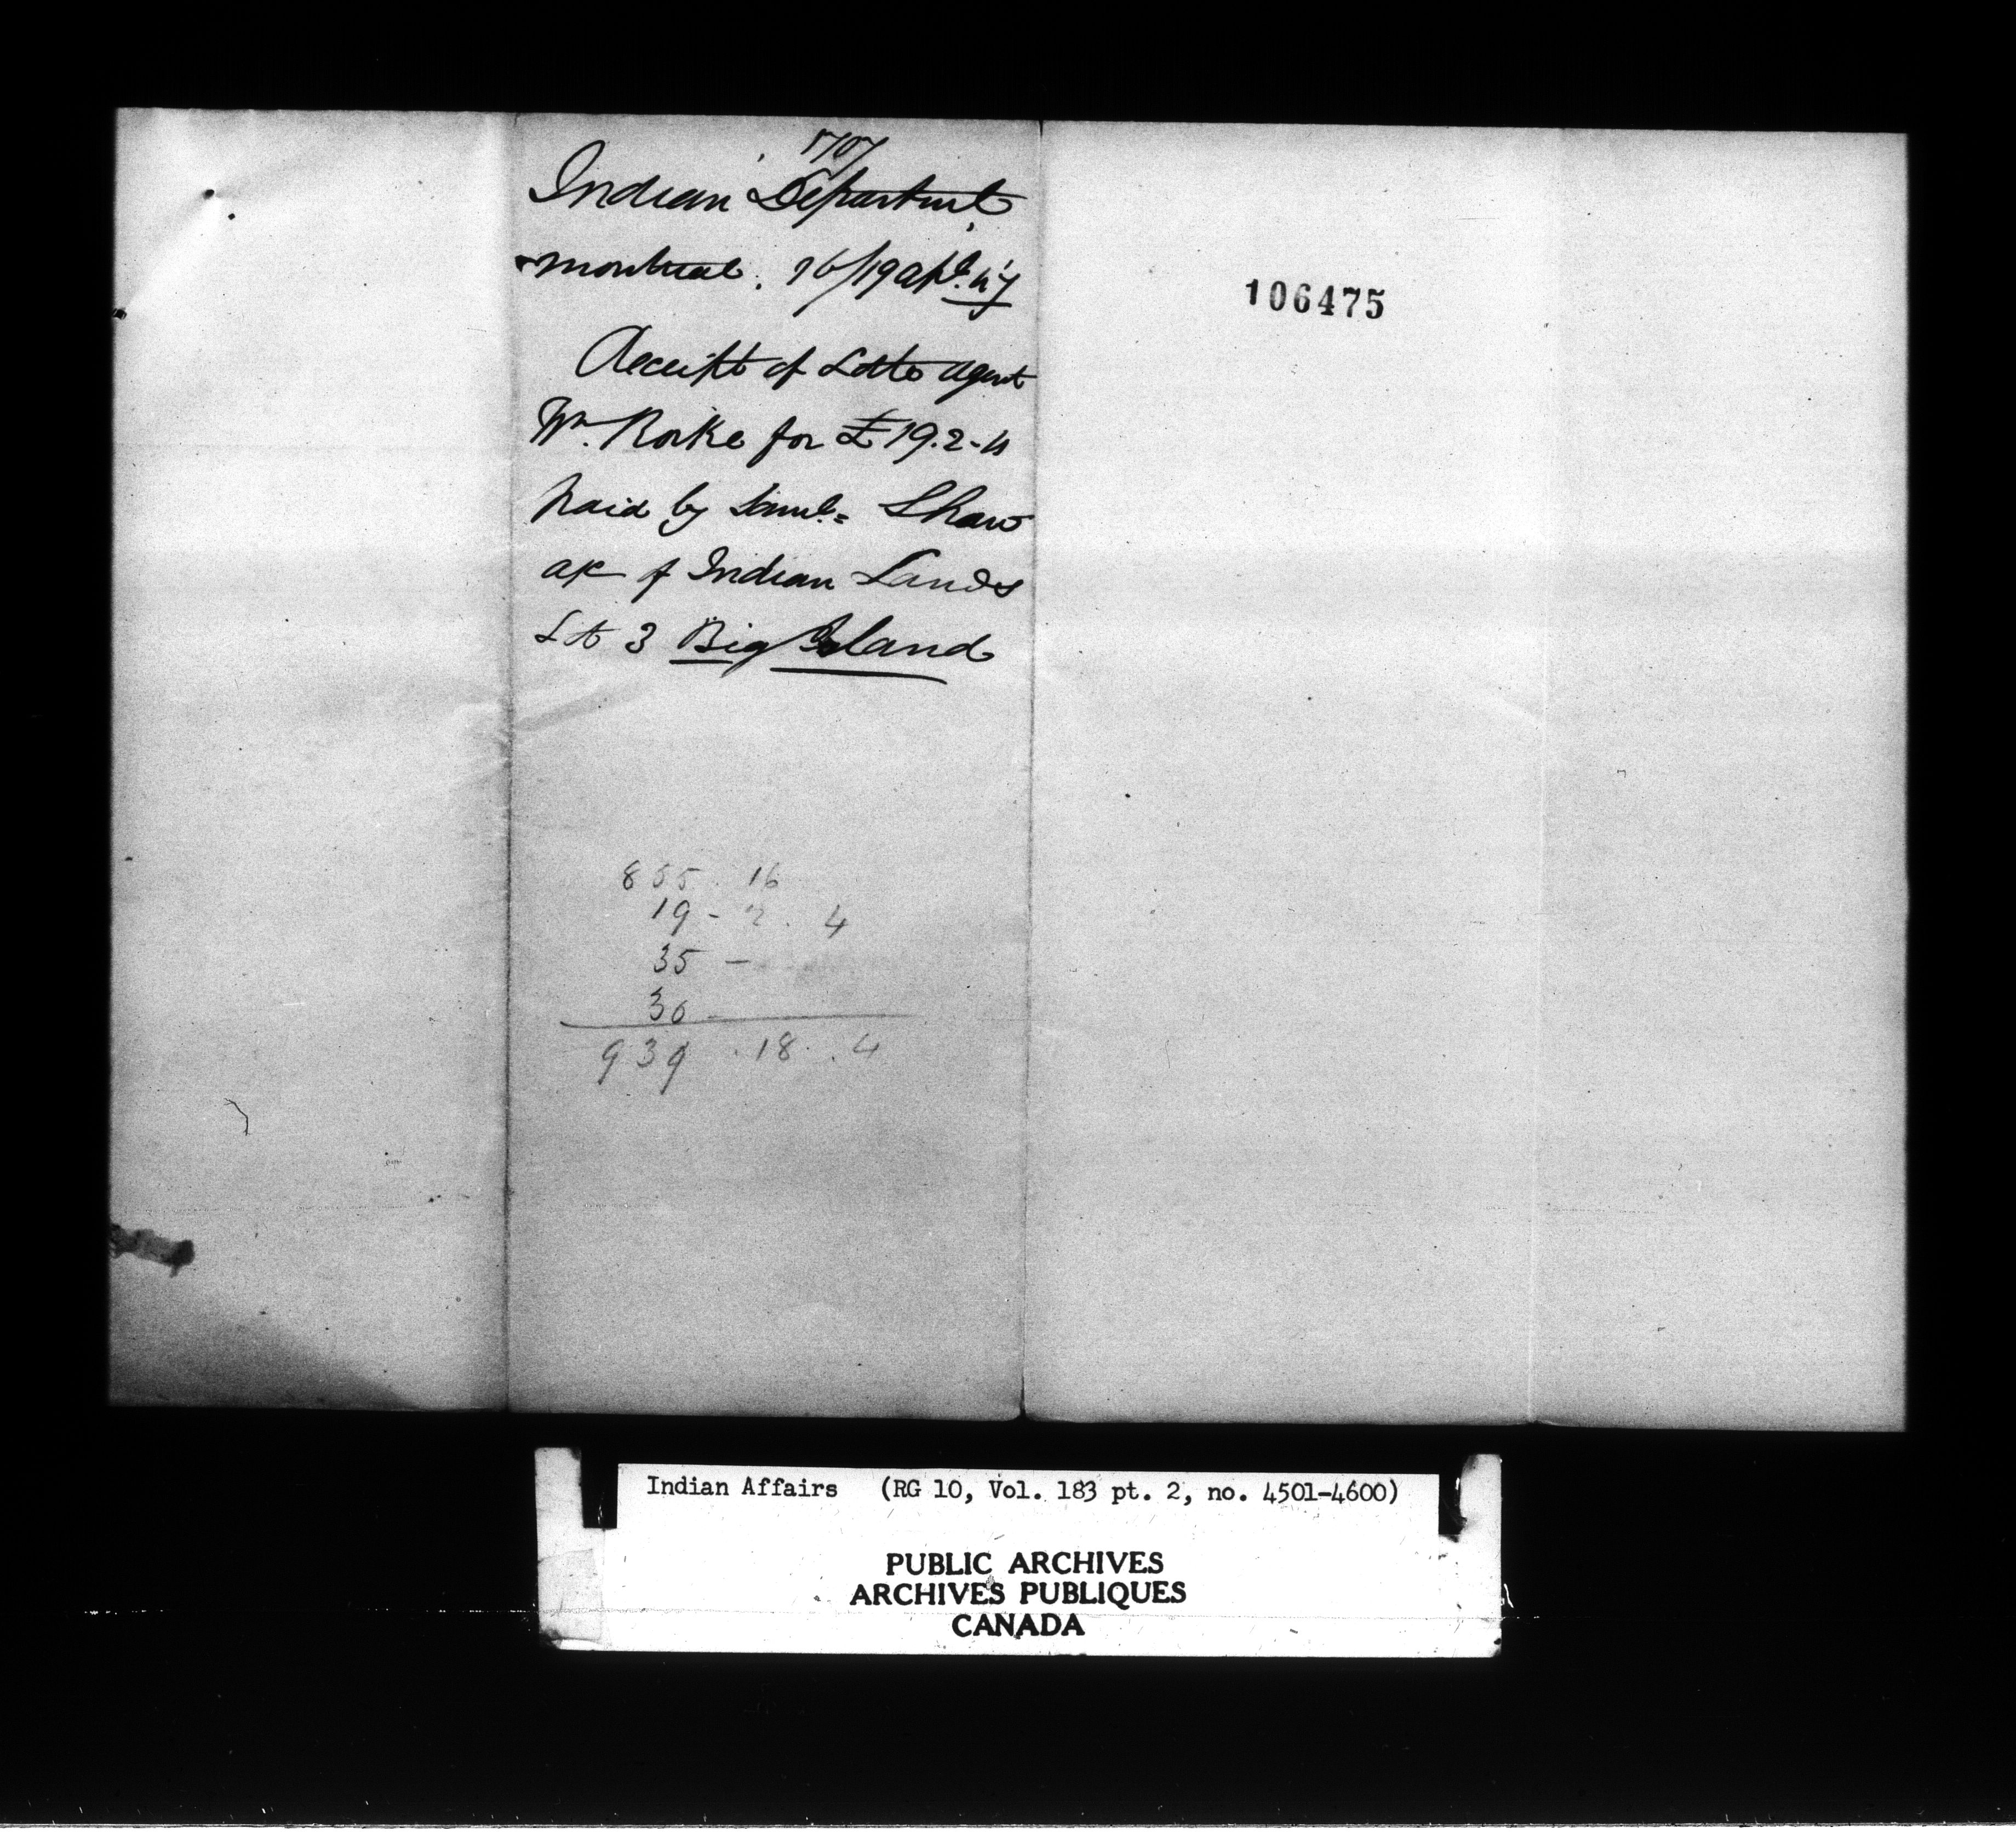 1707
Indian Department
Montreal. 16/19 Apl. 47
Receipt of Dist. Agent
Wm. Rorke for £19.2-4
paid by Saml. Shaw
a/c of Indian Lands
Lot 3 Big Island
106475
855 . 16
19 - 2 . 4
35 -
30 -
939 . 18 . 4
Indian Affairs (RG 10, Vol. 183 pt. 2, no. 4501-4600)
PUBLIC ARCHIVES
ARCHIVES PUBLIQUES
CANADA